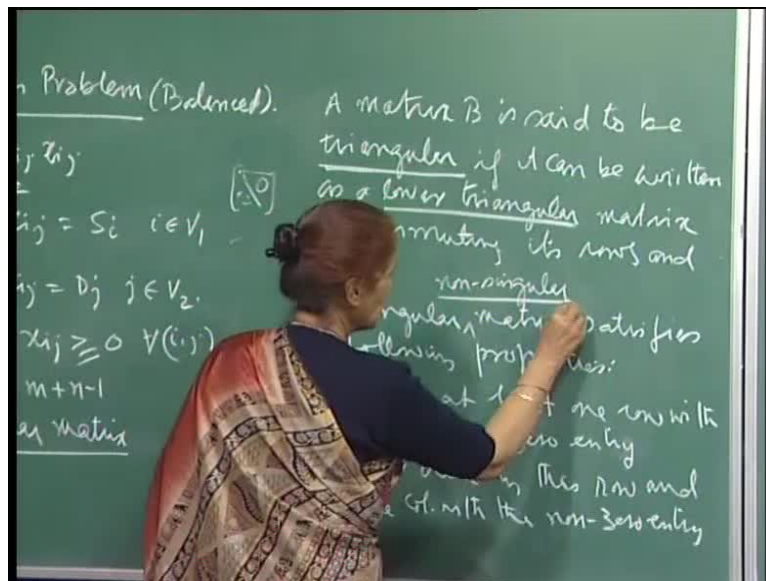 Problem (Balanced).
ij xij
xij = Si i ∈ V1
ij = Dj j ∈ V2.
xij ≥ 0 ∀(i,j)
m+n-1
matrix
A matrix B is said to be
triangular if it can be written
as a lower triangular matrix
its rows and
non-singular
matrix satisfies
following properties:
at least one row with
entry
this row and
col. with the non-zero entry